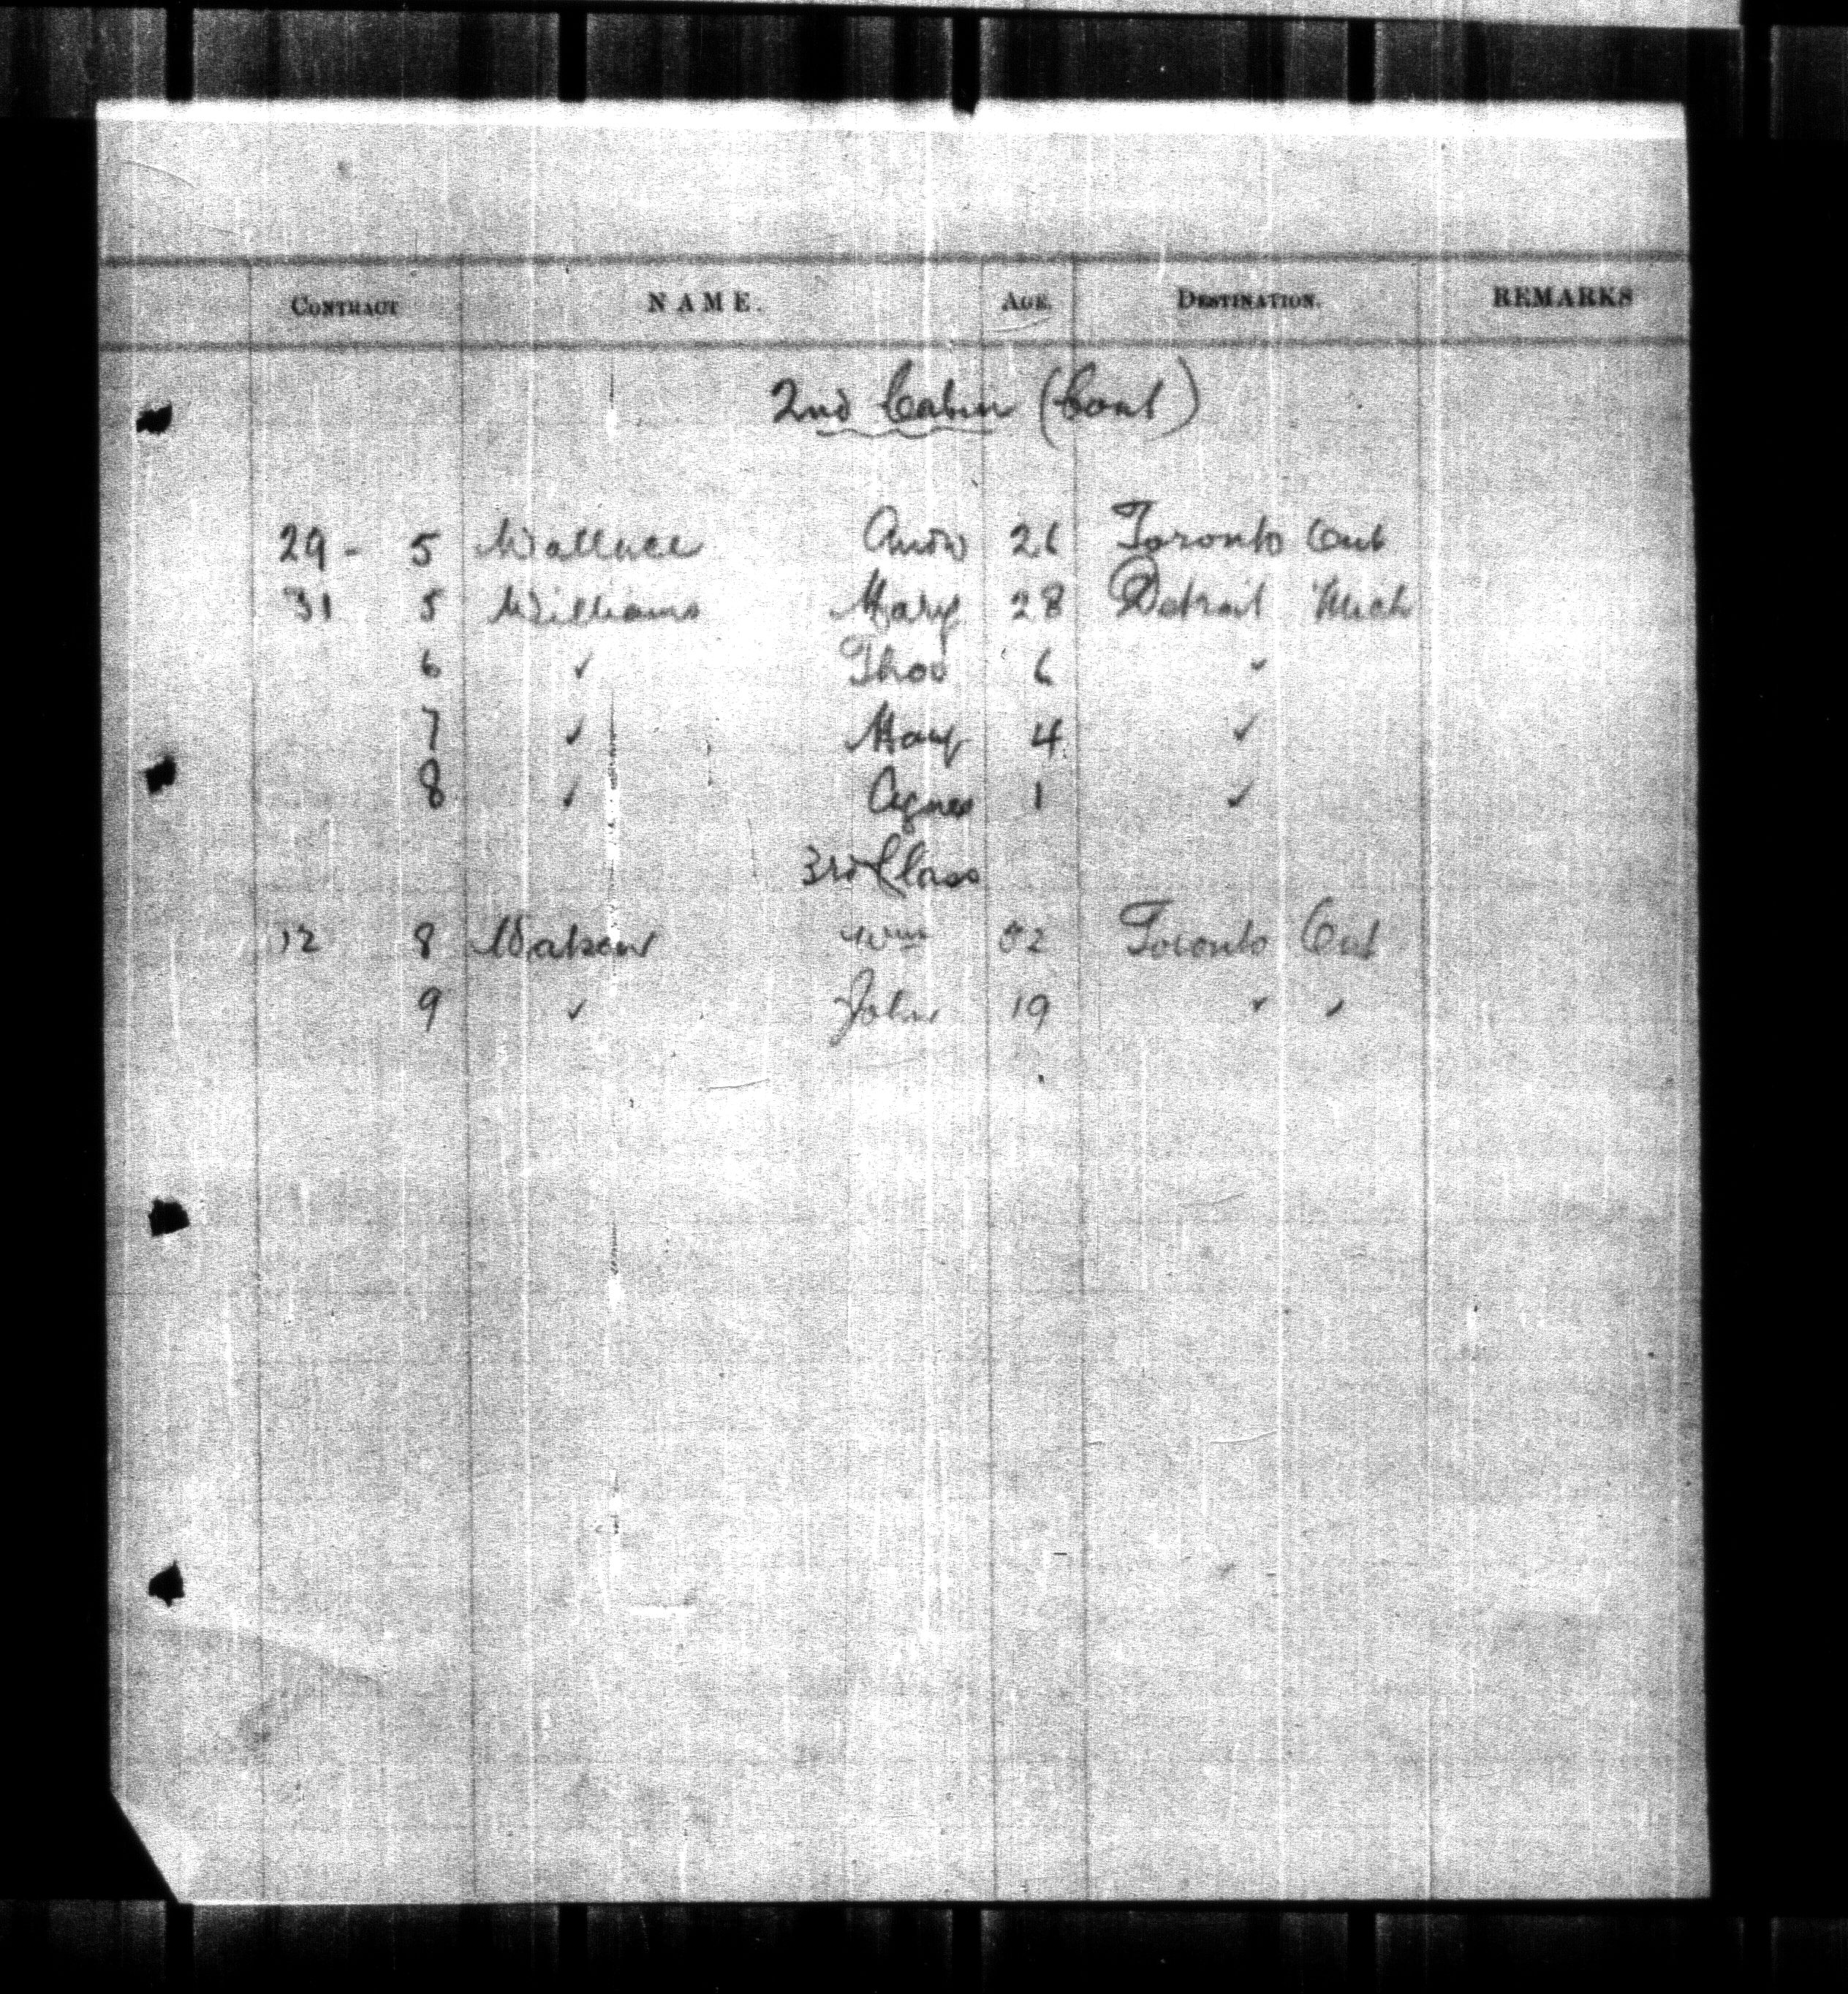 CONTRACT NAME. AGE. DESTINATION. REMARKS
2nd Cabin (Cont)
29 - 5 Wallace Andw 26 Toronto Ont
31 5 Williams Mary 28 Detroit Mich
6 ✓ Thos 6 ✓
7 ✓ Mary 4 ✓
8 ✓ Agnes 1 ✓
3rd Class
12 8 Watson Wm 52 Toronto Ont
9 ✓ John 19 ✓ ✓